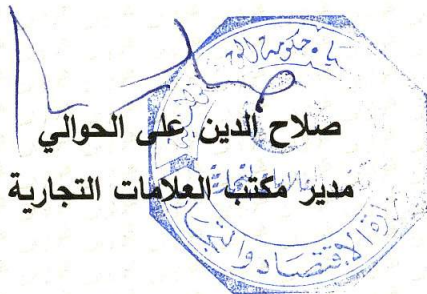 صلاح الدين على الحوالي
مدير مكتب العلامات التجارية
وزارة الاقتصاد والتجارة